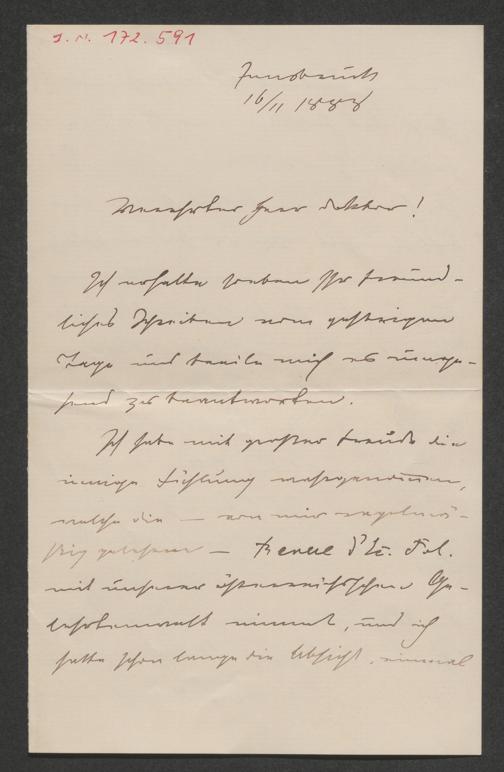 J.N. 172.591
Innsbruck
16/11 1888
Verehrter Herr Doktor!
Ich erhalte soeben Ihr freund-
liches Schreiben vom gestrigen
Tage und beeile mich es umge-
hend zu beantworten.
Ich habe mit großer Freude die
innige Fühlung wahrgenommen,
welche die — von mir regelmä-
ßig gelesene — Revue d'
mit unserer österreichischen Ge-
lehrtenwelt nimmt, und ich
hatte schon lange die Absicht, einmal